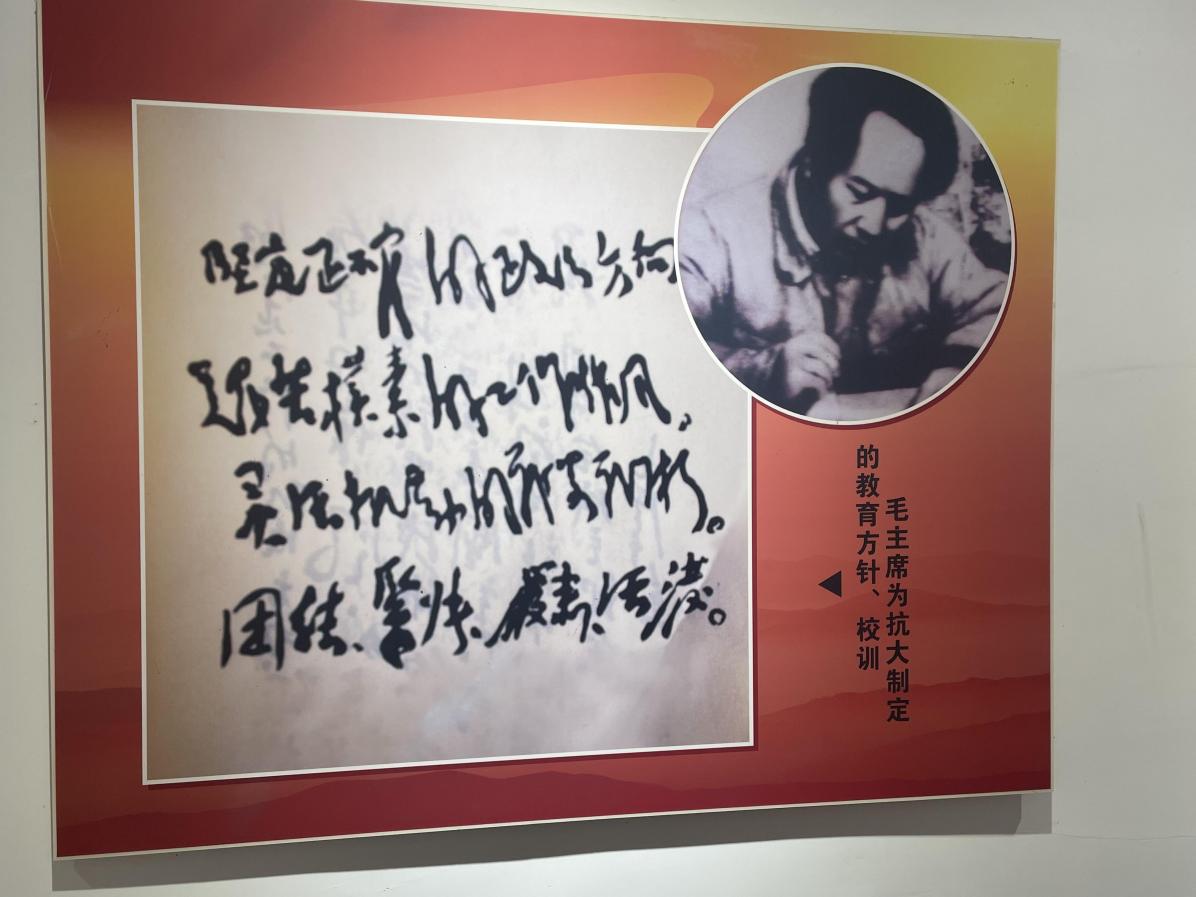 坚定正确的政治方向
艰苦樸素的工作作风,
灵活机动的战略战术。
团结、緊张、嚴肃、活潑。
毛主席为抗大制定
的教育方针、校训